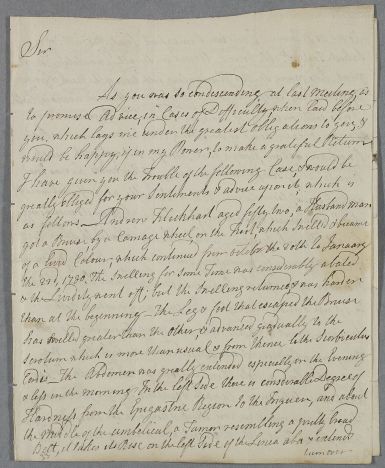 Sir
As you was so condescending at last Meeting, as
to promise Advice, in Cases of Difficulty when laid before
you, which lays me under the greatest obligations to you, &
would be happy, if in my Power, to make a grateful Return
I have given you the Trouble of the following Case, & would be
greatly obliged for your Sentiments & advice upon it, which is
as follows. Andrew aged fifty two, a Husband man
got a Bruise by a Carriage wheel on the Foot which swell'd & became
of a livid Colour, which continued from the 20th to January
the 1780, The Swelling for some Time was considerably abated
& the Lividity went off; but the Swelling returned, & was harder
than at the beginning. The Leg & foot that escaped the Bruise
has swelled greater than the other & advanced gradually to the
Scrotum which is more than usual & from thence to the Scrobiculus
Cordis. The Abdomen was greatly extended especially in the Evening
& less in the morning. In the left Side there is considerable Degree of
Hardness from the Epigastric Region to the Inguen, and about
the Middle of the umbelical, a Tumor resembling a
it takes its Rise on the left Side of the Linea alba & extends
turnover